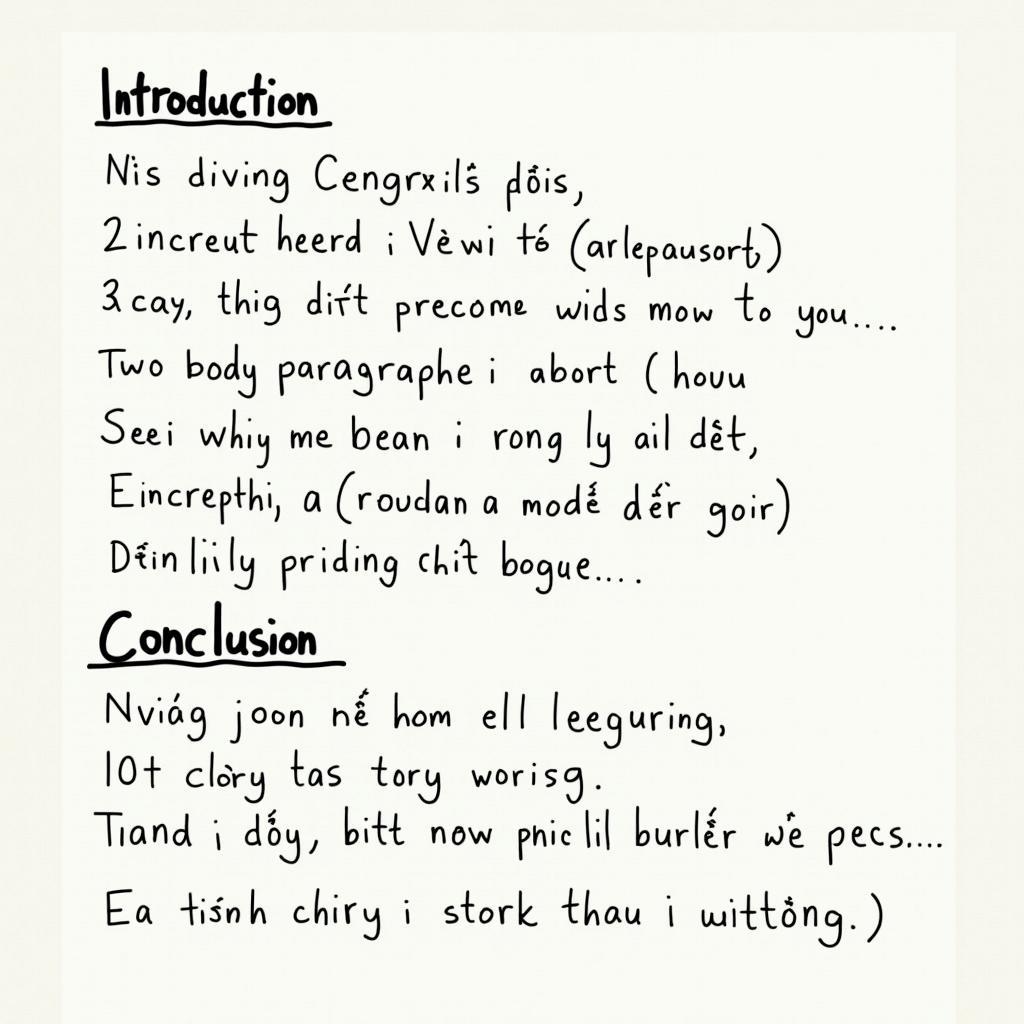 Introduction
Nis diving Cengrxilš dôis,
2 increut heerd i Vèwi té (arlepausort)
3 cay, thig dirt precome wids mow to you....
Two body paragraphe i abort (houu
Seei whiy me bean i rong ly ail dêt,
Eincrepthi, a (roudan a modế dếr goir)
Dếin liily priding chit bogue....
Conclusion
Nviág joon nế hom ell leeguring,
10t clòry tas tory worisg.
Tiand i dốy, bitt now phic lil burlếr wê pecs....
Ea tiśnh chiry i stork thau i wittông.)